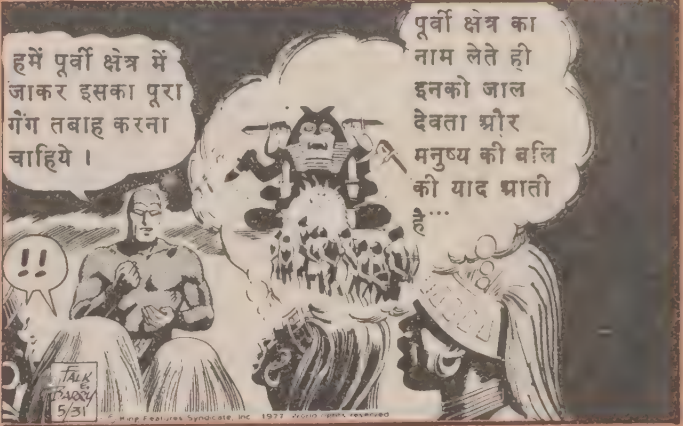 हमें पूर्वी क्षेत्र में
जाकर इसका पूरा
गैंग तबाह करना
चाहिये ।
पूर्वी क्षेत्र का
नाम लेते ही
इनको जाल
देवता और
मनुष्य की बलि
की याद आती
है...
!!
FALK
BARRY
5/31
King Features Syndicate, Inc. 1977. World rights reserved